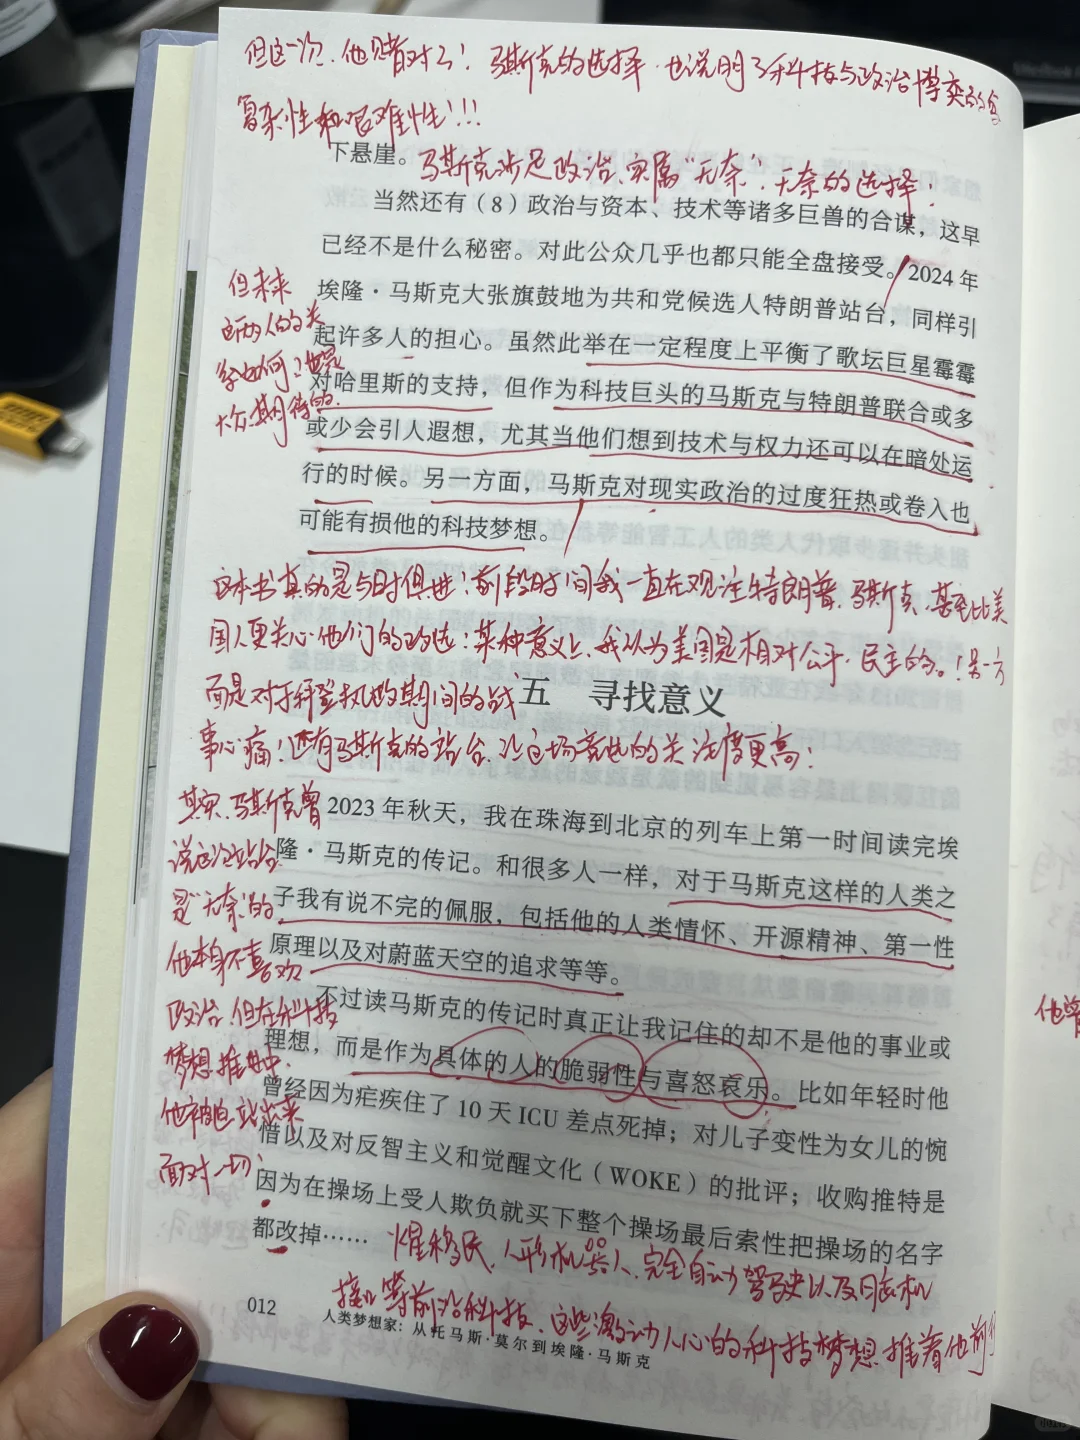 但这一次，他赌对了！马斯克的选择，也说明了科技与政治博奕的
复杂性和艰难性!!!
下悬崖。
马斯克涉足政治，实属“无奈”，无奈的选择！
当然还有（8）政治与资本、技术等诸多巨兽的合谋，这早
已经不是什么秘密。对此公众几乎也都只能全盘接受。2024 年
埃隆·马斯克大张旗鼓地为共和党候选人特朗普站台，同样引
起许多人的担心。虽然此举在一定程度上平衡了歌坛巨星霉霉
对哈里斯的支持，但作为科技巨头的马斯克与特朗普联合或多
或少会引人遐想，尤其当他们想到技术与权力还可以在暗处运
行的时候。另一方面，马斯克对现实政治的过度狂热或卷入也
可能有损他的科技梦想。
但未来
这两人的关
系如何？也是
大众期待的.
这本书真的是与时俱进！前段时间我一直在观注特朗普、马斯克，甚至比美
国人更关心他们的政选！某种意义上，我认为美国是相对公平、民主的。！另一方
面是对于拜登执政期间的战
事心痛！还有马斯克的站台，让这场竞选的关注度更高！
五 寻找意义
2023 年秋天，我在珠海到北京的列车上第一时间读完埃
隆·马斯克的传记。和很多人一样，对于马斯克这样的人类之
子我有说不完的佩服，包括他的人类情怀、开源精神、第一性
原理以及对蔚蓝天空的追求等等。
不过读马斯克的传记时真正让我记住的却不是他的事业或
理想，而是作为具体的人的脆弱性与喜怒哀乐。比如年轻时他
曾经因为疟疾住了 10 天 ICU 差点死掉；对儿子变性为女儿的惋
惜以及对反智主义和觉醒文化（WOKE）的批评；收购推特是
因为在操场上受人欺负就买下整个操场最后索性把操场的名字
都改掉……
其实，马斯克曾
说这次站台
是“无奈”的
他本身不喜欢
政治，但在科技
梦想推进中.
他被迫站出来
面对一切！
火星移民，人形机器人，完全自动驾驶以及脑机
接口等前沿科技，这些激动人心的科技梦想推着他前行
012
人类梦想家：从托马斯·莫尔到埃隆·马斯克
他常